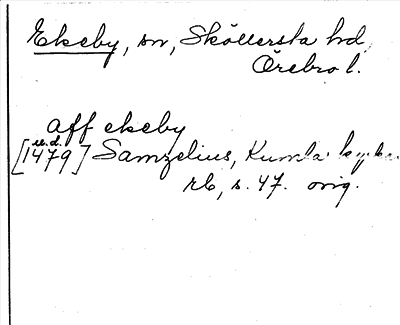 Ekeby, sn, Sköllersta hd,
Örebro l.
aff ekeby
u.d.
[1479] Samzelius, Kumla kyrko
rb, s. 47. orig.